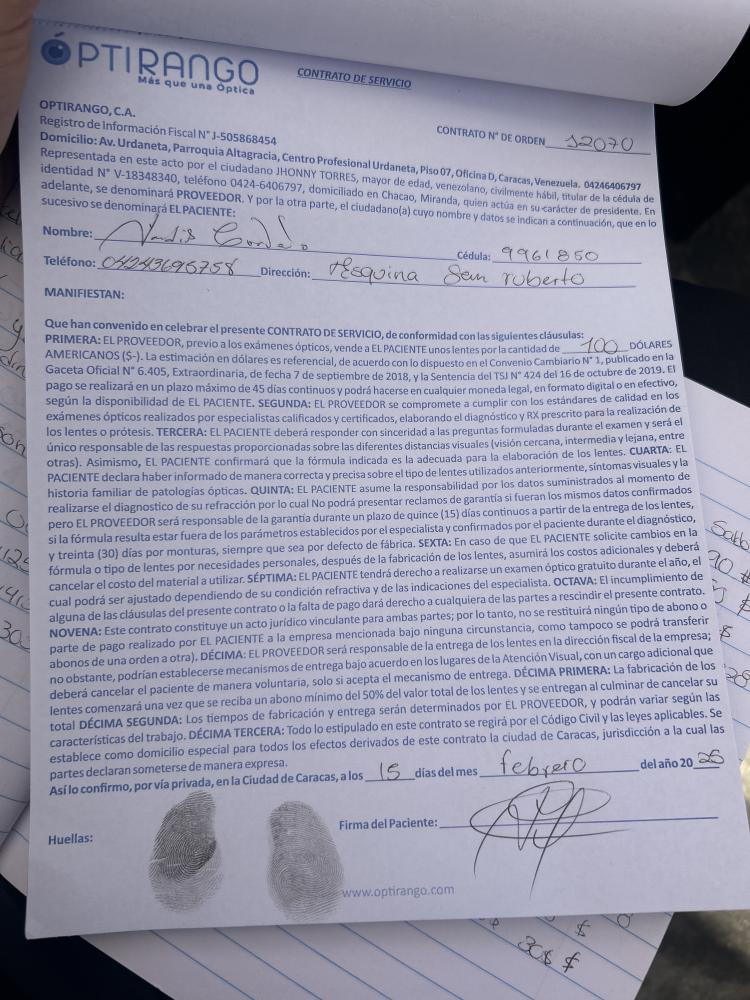 ÓPTIRANGO
Más que una Óptica
CONTRATO DE SERVICIO
OPTIRANGO, C.A.
Registro de Información Fiscal N° J-505868454
CONTRATO N° DE ORDEN 12070
Domicilio: Av. Urdaneta, Parroquia Altagracia, Centro Profesional Urdaneta, Piso 07, Oficina D, Caracas, Venezuela. 04246406797
Representada en este acto por el ciudadano JHONNY TORRES, mayor de edad, venezolano, civilmente hábil, titular de la cédula de
identidad N° V-18348340, teléfono 0424-6406797, domiciliado en Chacao, Miranda, quien actúa en su carácter de presidente. En
adelante, se denominará PROVEEDOR. Y por la otra parte, el ciudadano(a) cuyo nombre y datos se indican a continuación, que en lo
sucesivo se denominará EL PACIENTE:
Nombre:
Cédula: 9961850
Teléfono: 04243695758 Dirección: Esquina San ruberto
MANIFIESTAN:
Que han convenido en celebrar el presente CONTRATO DE SERVICIO, de conformidad con las siguientes cláusulas:
PRIMERA: EL PROVEEDOR, previo a los exámenes ópticos, vende a EL PACIENTE unos lentes por la cantidad de 100 DÓLARES
AMERICANOS ($-). La estimación en dólares es referencial, de acuerdo con lo dispuesto en el Convenio Cambiario N° 1, publicado en la
Gaceta Oficial N° 6.405, Extraordinaria, de fecha 7 de septiembre de 2018, y la Sentencia del TSJ N° 424 del 16 de octubre de 2019. El
pago se realizará en un plazo máximo de 45 días continuos y podrá hacerse en cualquier moneda legal, en formato digital o en efectivo,
según la disponibilidad de EL PACIENTE. SEGUNDA: EL PROVEEDOR se compromete a cumplir con los estándares de calidad en los
exámenes ópticos realizados por especialistas calificados y certificados, elaborando el diagnóstico y RX prescrito para la realización de
los lentes o prótesis. TERCERA: EL PACIENTE deberá responder con sinceridad a las preguntas formuladas durante el examen y será el
único responsable de las respuestas proporcionadas sobre las diferentes distancias visuales (visión cercana, intermedia y lejana, entre
otras). Asimismo, EL PACIENTE confirmará que la fórmula indicada es la adecuada para la elaboración de los lentes. CUARTA: EL
PACIENTE declara haber informado de manera correcta y precisa sobre el tipo de lentes utilizados anteriormente, síntomas visuales y la
historia familiar de patologías ópticas. QUINTA: EL PACIENTE asume la responsabilidad por los datos suministrados al momento de
realizarse el diagnostico de su refracción por lo cual No podrá presentar reclamos de garantía si fueran los mismos datos confirmados
pero EL PROVEEDOR será responsable de la garantía durante un plazo de quince (15) días continuos a partir de la entrega de los lentes,
si la fórmula resulta estar fuera de los parámetros establecidos por el especialista y confirmados por el paciente durante el diagnóstico,
y treinta (30) días por monturas, siempre que sea por defecto de fábrica. SEXTA: En caso de que EL PACIENTE solicite cambios en la
fórmula o tipo de lentes por necesidades personales, después de la fabricación de los lentes, asumirá los costos adicionales y deberá
cancelar el costo del material a utilizar. SÉPTIMA: EL PACIENTE tendrá derecho a realizarse un examen óptico gratuito durante el año, el
cual podrá ser ajustado dependiendo de su condición refractiva y de las indicaciones del especialista. OCTAVA: El incumplimiento de
alguna de las cláusulas del presente contrato o la falta de pago dará derecho a cualquiera de las partes a rescindir el presente contrato.
NOVENA: Este contrato constituye un acto jurídico vinculante para ambas partes; por lo tanto, no se restituirá ningún tipo de abono o
parte de pago realizado por EL PACIENTE a la empresa mencionada bajo ninguna circunstancia, como tampoco se podrá transferir
abonos de una orden a otra). DÉCIMA: EL PROVEEDOR será responsable de la entrega de los lentes en la dirección fiscal de la empresa;
no obstante, podrían establecerse mecanismos de entrega bajo acuerdo en los lugares de la Atención Visual, con un cargo adicional que
deberá cancelar el paciente de manera voluntaria, solo si acepta el mecanismo de entrega. DÉCIMA PRIMERA: La fabricación de los
lentes comenzará una vez que se reciba un abono mínimo del 50% del valor total de los lentes y se entregan al culminar de cancelar su
total DÉCIMA SEGUNDA: Los tiempos de fabricación y entrega serán determinados por EL PROVEEDOR, y podrán variar según las
características del trabajo. DÉCIMA TERCERA: Todo lo estipulado en este contrato se regirá por el Código Civil y las leyes aplicables. Se
establece como domicilio especial para todos los efectos derivados de este contrato la ciudad de Caracas, jurisdicción a la cual las
partes declaran someterse de manera expresa.
Así lo confirmo, por vía privada, en la Ciudad de Caracas, a los 15 días del mes febrero del año 2025
Huellas:
Firma del Paciente:
www.optirango.com
30$ $